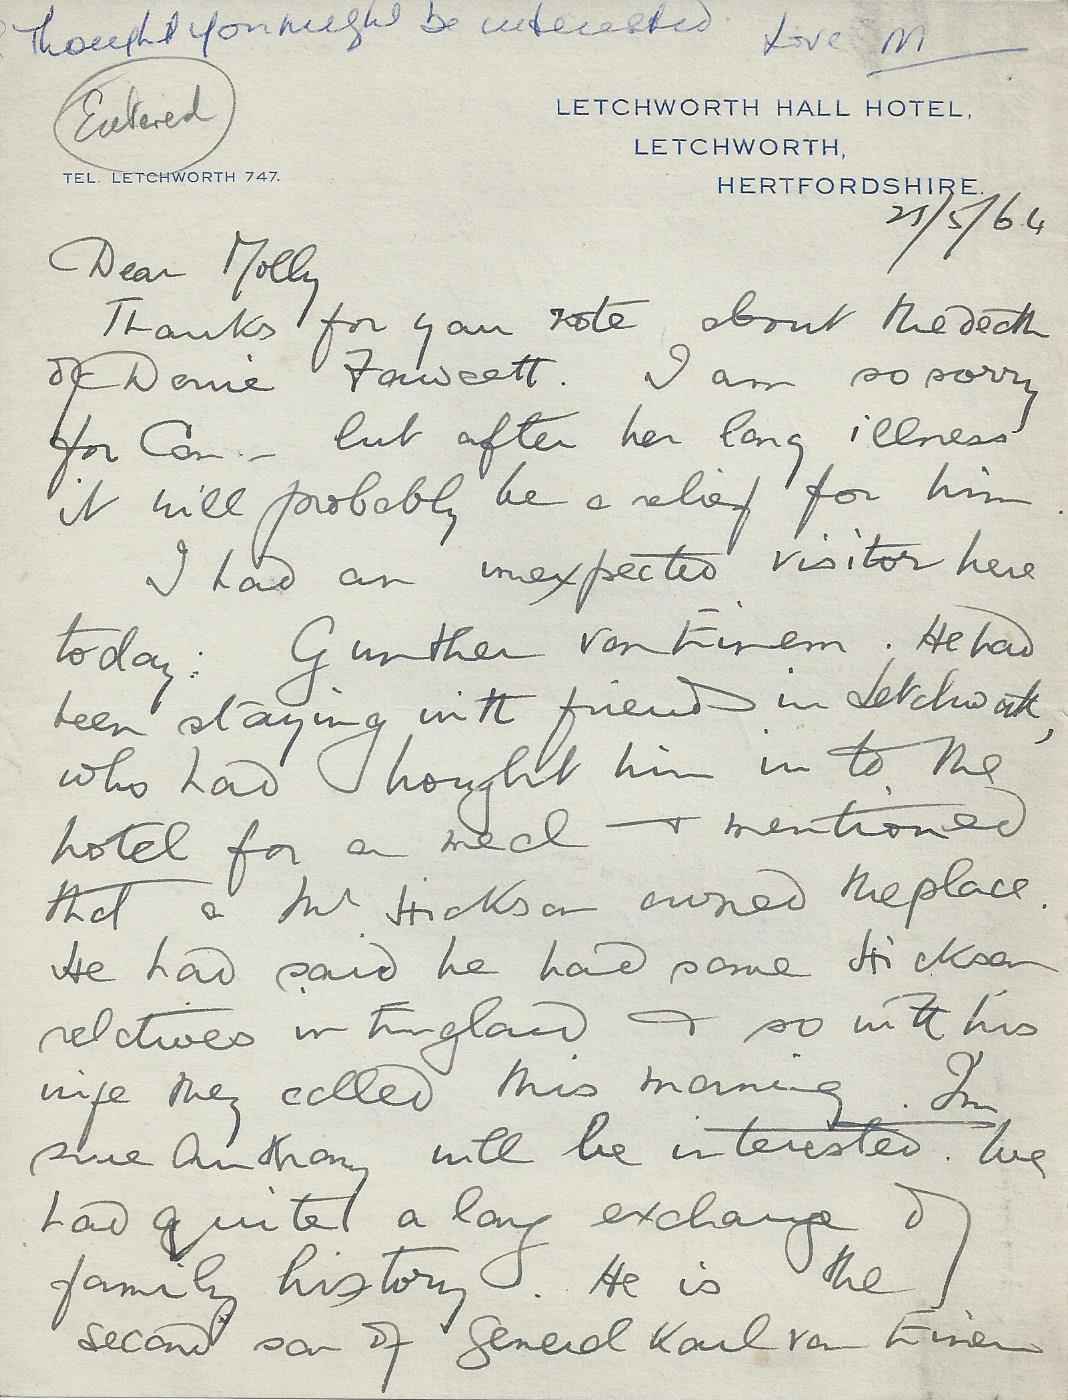 Thought you might be interested. Love M
Entered
LETCHWORTH HALL HOTEL,
LETCHWORTH,
TEL. LETCHWORTH 747.
HERTFORDSHIRE.
/5/64
Dear Molly
Thanks for your note about the death
of Fawcett. I am so sorry
for Con - but after her long illness
it will probably be a relief for him.
I had an unexpected visitor here
today: Gunther von Einem. He had
been staying with friends in Letchworth,
who had brought him in to the
hotel for a meal + mentioned
that a Mr Hickson owned the place.
He had said he had some Hickson
relatives in England + so with his
wife they called this morning. I'm
sure Anthony will be interested. We
had quite a long exchange of
family history. He is the
second son of General Karl von Einem